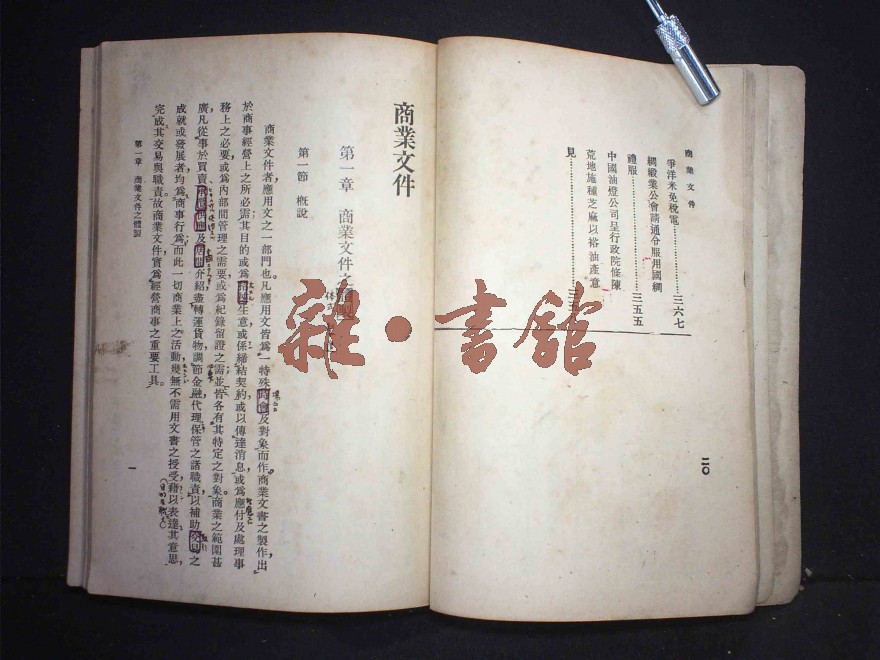 商業文件
爭洋米免稅電……三六七
綢緞業公會請通令服用國綢
禮服……三五五
中國油燈公司呈行政院條陳
荒地施種芝麻以裕油產意
見……三三
二〇
商業文件
第一章 商業文件之體製
第一節 概說
商業文件者,應用文之一部門也。凡應用文皆爲一特殊時會及對象而作。商業文書之製作,出
於商事經營上之所必需,其目的或爲招攬生意,或係締結契約,或以傳達消息,或爲應付及處理事
務上之必要,或爲內部間管理之需要,或爲紀錄留證之需,並皆各有其特定之對象。商業之範圍甚
廣,凡從事於買賣及介紹,盡轉運貨物,調節金融,代理保管之諸職責,以補助交易之
成就或發展者,均爲商事行爲,而此一切商業上之活動,幾無不需用文書之授受,藉以表達其意思,
完成其交易與職責。故商業文件,實爲經營商事之重要工具。
第一章 商業文件之體製
一
雜·書館